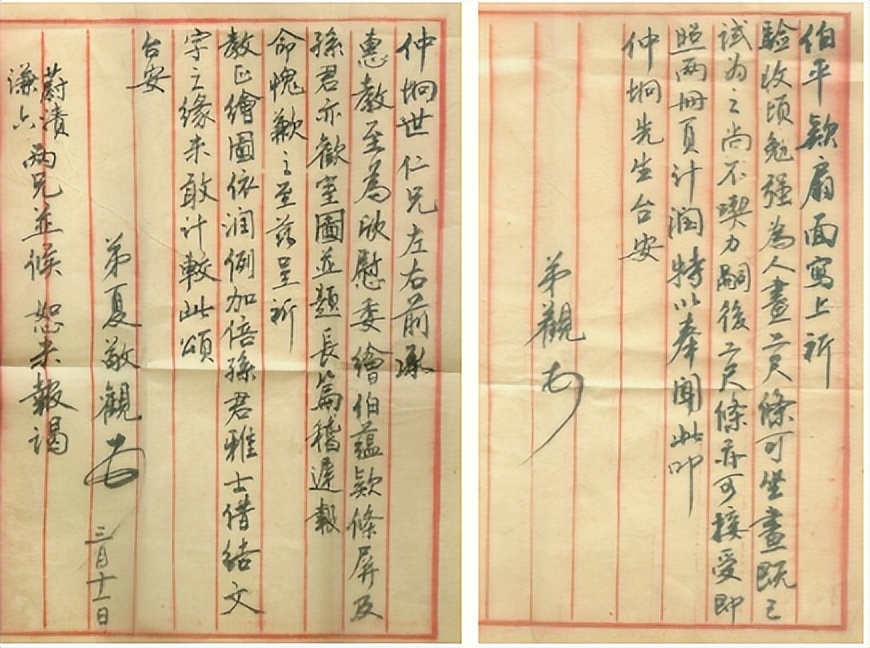 伯平款扇面寫上祈
驗收頃勉強為人畫二尺條可坐畫既已
試為之尚不喫力嗣後二尺條亦可接受即
照兩冊頁計潤特以奉聞此叩
仲坰先生台安
弟觀
仲坰世仁兄左右前承
惠教至為欣慰委繪伯蘊款條屏及
孫君亦歡室圖並題長篇稽遲報
命愧歉之至茲呈祈
教正繪圖依潤例加倍孫君雅士借結文
字之緣未敢計較此頌
台安
弟夏敬觀 三月十一日
蔚漬
謙六
兩兄並候 恕未報謁